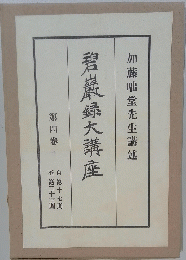 加藤咄堂先生講述
碧巖録大講座
第四卷